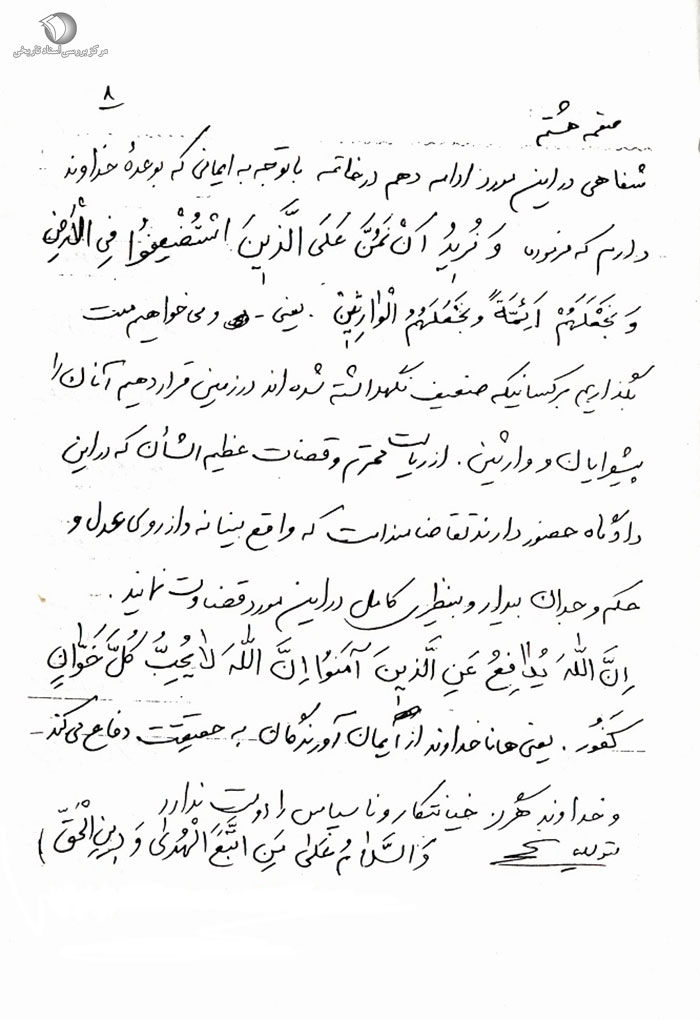 مرکز بررسی اسناد تاریخی
۸
صفحه هشتم
شفاهی در این مورد ادامه دهم در خاتمه با توجه به ایمانی که بوعدهٔ خداوند
دارم که فرموده وَ نُرِیدُ اَنْ نَمُنَّ عَلَی الَّذینَ اسْتُضْعِفُوا فِی الْاَرْضِ
وَ نَجْعَلَهُمْ اَئِمَّةً وَ نَجْعَلَهُمُ الْوارِثینَ . یعنی - و می خواهیم منت
بگذاریم بر کسانیکه ضعیف نگهداشته شده اند در زمین قرار دهیم آنان را
پیشوایان و وارثین . از ریاست محترم و قضات عظیم الشأن که در این
دادگاه حضور دارند تقاضامندست که واقع بینانه و از روی عدل و
حکم وجدان بیدار و بینظری کامل در این مورد قضاوت نمایند .
اِنَّ اللّٰهَ یُدافِعُ عَنِ الَّذینَ آمَنُوا اِنَّ اللّٰهَ لا یُحِبُّ کُلَّ خَوّانٍ
کَفُور . یعنی همانا خداوند از ایمان آورندگان به حقیقت دفاع می کند
و خداوند هرگز خیانتکار و ناسپاس را دوست ندارد
وَ السَّلامُ عَلیٰ مَنِ اتَّبَعَ الْهُدیٰ وَ دینِ الْحَقِّ )